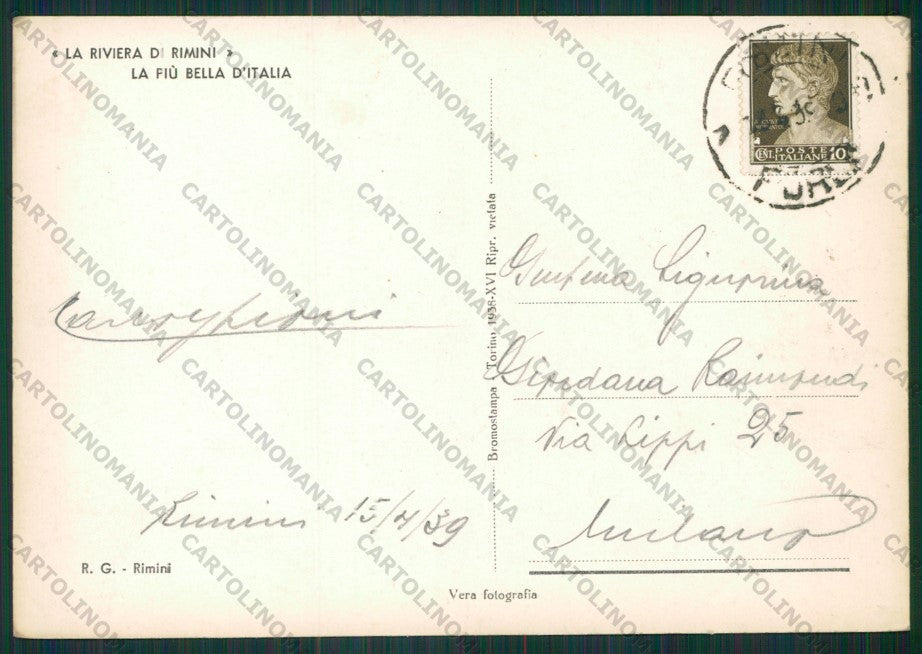 « LA RIVIERA DI RIMINI »
LA PIÙ BELLA D'ITALIA
POSTE
CENT. ITALIANE 10
FORLI
Bromostampa - Torino 1938-XVI Ripr. vietata
Signorina
Giordana Raimondi
Via Lippi 25
Milano
Rimini 15/4/39
R. G. - Rimini
Vera fotografia
CARTOLINOMANIA